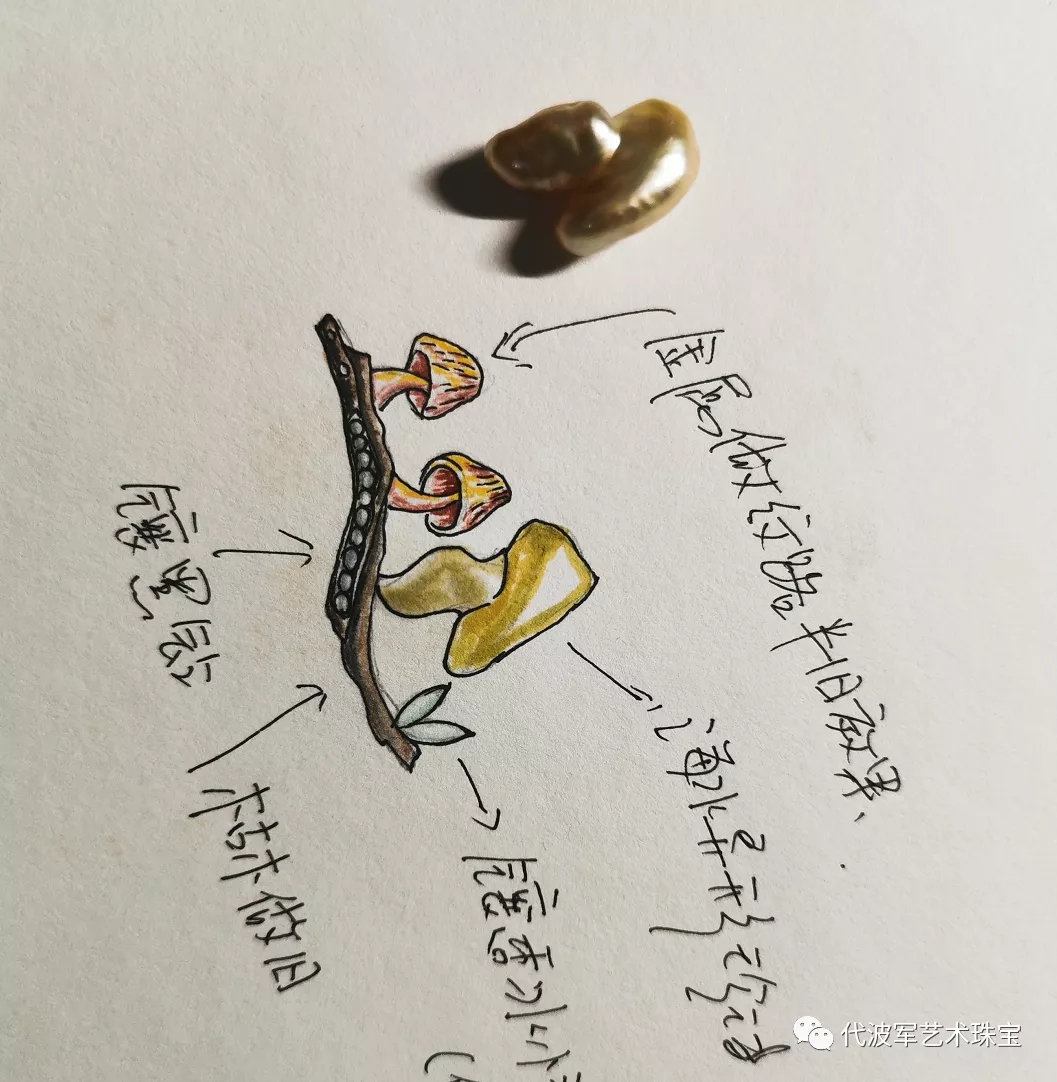 金属做纹路半旧效果、
海水异形珍珠
镶黑钻
枯木做旧
代波军艺术珠宝